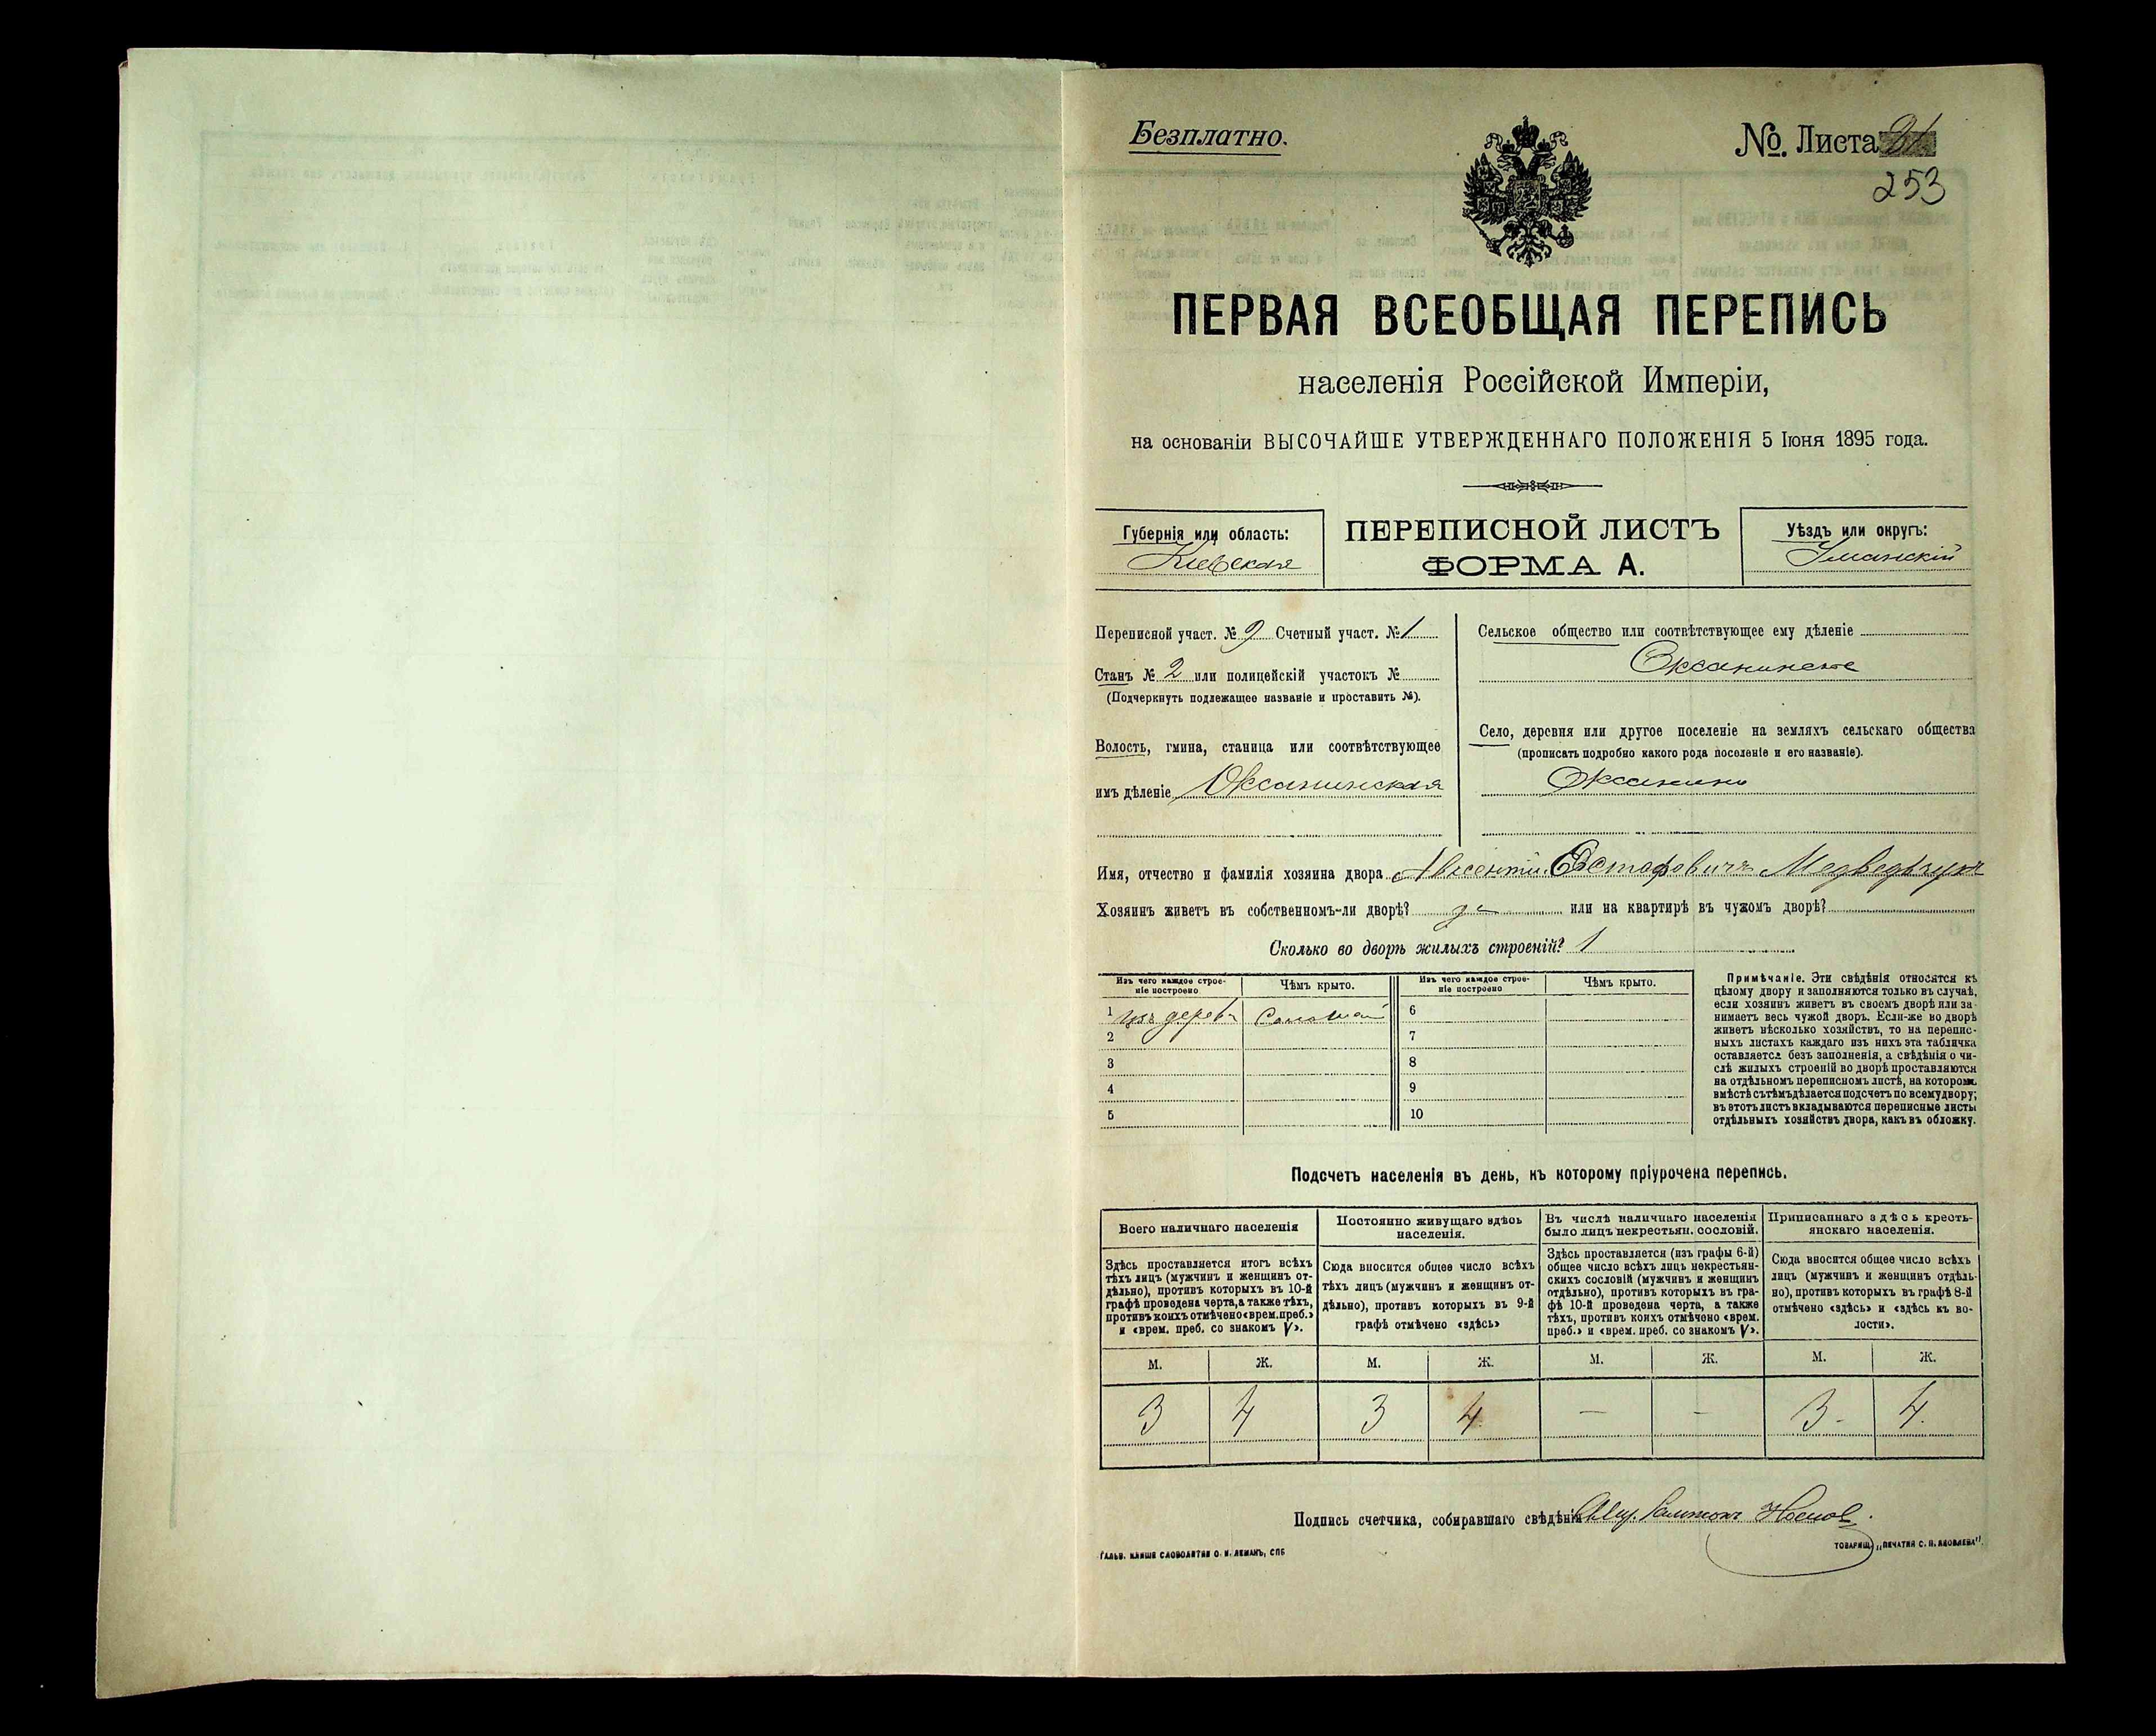 Безплатно.
№ Листа 31
253
ПЕРВАЯ ВСЕОБЩАЯ ПЕРЕПИСЬ
населенія Россійской Имперіи,
на основаніи ВЫСОЧАЙШЕ УТВЕРЖДЕННАГО ПОЛОЖЕНІЯ 5 Іюня 1895 года.
Губернія или область:
Кіевская
ПЕРЕПИСНОЙ ЛИСТЪ
ФОРМА А.
Уѣздъ или округъ:
Уманскій
Переписной участ. № 9 Счетный участ. № 1
Станъ № 2 или полицейскій участокъ №
(Подчеркнуть подлежащее названіе и проставить №).
Волость, гмина, станица или соотвѣтствующее
имъ дѣленіе Оксанинская
Сельское общество или соотвѣтствующее ему дѣленіе
Оксанинское
Село, деревня или другое поселеніе на земляхъ сельскаго общества
(прописать подробно какого рода поселеніе и его названіе).
Оксанино
Имя, отчество и фамилія хозяина двора Авксентій Евстафовичъ Медведчукъ
Хозяинъ живетъ въ собственномъ-ли дворѣ? да или на квартирѣ въ чужомъ дворѣ?
Сколько во дворѣ жилыхъ строеній? 1
Изъ чего каждое строе-
ніе построено
Чѣмъ крыто.
Изъ чего каждое строе-
ніе построено
Чѣмъ крыто.
1 изъ дерева Соломой 6
2 7
3 8
4 9
5 10
Примѣчаніе. Эти свѣдѣнія относятся къ
цѣлому двору и заполняются только въ случаѣ,
если хозяинъ живетъ въ своемъ дворѣ или за-
нимаетъ весь чужой дворъ. Если-же во дворѣ
живетъ нѣсколько хозяйствъ, то на перепис-
ныхъ листахъ каждаго изъ нихъ эта табличка
оставляется безъ заполненія, а свѣдѣнія о чи-
слѣ жилыхъ строеній во дворѣ проставляются
на отдѣльномъ переписномъ листѣ, на которомъ
вмѣстѣ съ тѣмъ дѣлается подсчетъ по всему двору;
въ этотъ листъ вкладываются переписные листы
отдѣльныхъ хозяйствъ двора, какъ въ обложку.
Подсчетъ населенія въ день, къ которому пріурочена перепись.
Всего наличнаго населенія
Здѣсь проставляется итогъ всѣхъ
тѣхъ лицъ (мужчинъ и женщинъ от-
дѣльно), противъ которыхъ въ 10-й
графѣ проведена черта, а также тѣхъ,
противъ коихъ отмѣчено «врем. преб.»
и «врем. преб. со знакомъ V».
Постоянно живущаго здѣсь
населенія.
Сюда вносится общее число всѣхъ
тѣхъ лицъ (мужчинъ и женщинъ от-
дѣльно), противъ которыхъ въ 9-й
графѣ отмѣчено «здѣсь»
Въ числѣ наличнаго населенія
было лицъ некрестьян. сословій.
Здѣсь проставляется (изъ графы 6-й)
общее число всѣхъ лицъ некрестьян-
скихъ сословій (мужчинъ и женщинъ
отдѣльно), противъ которыхъ въ гра-
фѣ 10-й проведена черта, а также
тѣхъ, противъ коихъ отмѣчено «врем.
преб.» и «врем. преб. со знакомъ V».
Приписаннаго здѣсь кресть-
янскаго населенія.
Сюда вносится общее число всѣхъ
лицъ (мужчинъ и женщинъ отдѣль-
но), противъ которыхъ въ графѣ 8-й
отмѣчено «здѣсь» и «здѣсь къ во-
лости».
М. Ж. М. Ж. М. Ж. М. Ж.
3 4 3 4 — — 3 4
Подпись счетчика, собиравшаго свѣдѣнія
ГАЛЬВ. КЛИШЕ СЛОВОЛИТНИ О. И. ЛЕМАНЪ, СПБ
ТОВАРИЩ. „ПЕЧАТНЯ С. П. ЯКОВЛЕВА".